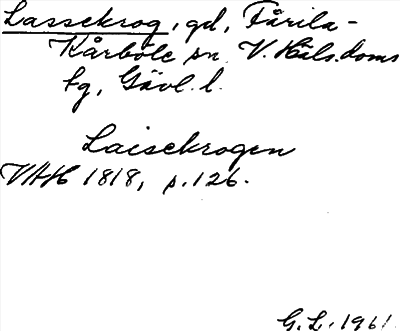 Lassekrog, gd, Färila-
Kårböle sn, V. Häls. doms
fg, Gävl. l.
Laisekrogen
VAH 1818, p. 126.
G. L. 1961